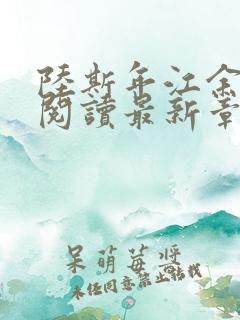 陸斯年江余
閱讀最新章
呆萌莓醬
未任同意禁止轉載